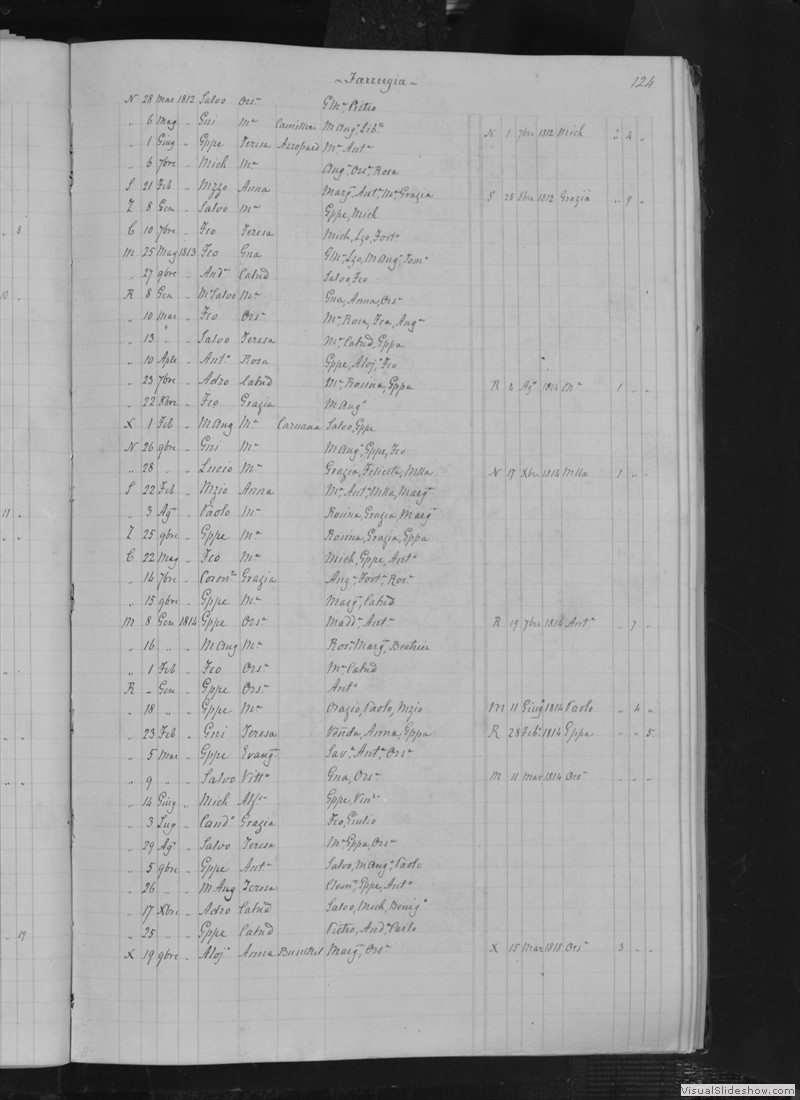 ~ Farrugia ~ 124
N 28 Mar 1812 Salvo Ors.ª G Mª, Pietro
„ 6 Mag „ Gni Mª Camilleri M Angª, Libª
„ 1 Giug „ Gppe Teresa Azzopard Mª, Antª N 1 7bre 1812 Mich „ 4 „
„ 6 7bre „ Mich Mª Angª, Orsª, Rosa
S 21 Feb „ Mzzo Anna Margª, Antª, Mª, Grazia S 28 8bre 1812 Grazia „ 9 „
Z 8 Gen „ Salvo Mª Gppe, Mich
8 C 10 7bre „ Fco Teresa Mich, Lzo, Fortª
M 25 Mag 1813 Fco Gna G Mª, Lzo, M Angª, Tomª
„ 27 9bre „ Andª Catnd Salvo, Fco
10 R 8 Gen „ Mª Salvo Mª Gna, Anna, Orsª
„ 10 Mar „ Fco Orsª Mª, Rosa, Fca, Angª
„ 13 „ „ Salvo Teresa Mª, Catnd, Gppa
„ 10 Aple „ Antº Rosa Gppe, Alojº, Fco
„ 23 7bre „ Adro Catnd Mª, Rosina, Gppa R Agº 1814 Mª 1 „ „
„ 22 8bre „ Fco Grazia M Angª
X 1 Feb „ M Ang Mª Caruana Salvo, Gppe
N 26 9bre „ Gni Mª M Angª, Gppe, Fco
„ 28 „ „ Lucio Mª Grazia, Felicita, Mlla N 17 Xbre 1814 Mlla 1 „ „
S 22 Feb „ Mzio Anna Mª, Antª, Mlla, Margª
11 „ 3 Agº „ Paolo Mª Rosina, Grazia, Margª
Z 25 9bre „ Gppe Mª Rosina, Grazia, Gppa
C 22 Mag „ Fco Mª Mich, Gppe, Antº
„ 14 7bre „ Coronª Grazia Angª, Fortª, Rosª
„ 15 9bre „ Gppe Mª Margª, Catnd
M 8 Gen 1814 Gppe Orsª Maddª, Antª R 19 7bre 1814 Antª „ 7 „
„ 16 „ „ M Ang Mª Rosª, Margª, Beatrice
„ 1 Feb „ Fco Orsª Mª, Catnd
R – Gen „ Gppe Orsª Antª
„ 18 „ „ Gppe Mª Orazio, Paolo, Mzio M 11 Giugº 1814 Paolo „ 4 „
„ 23 Feb „ Gni Teresa Anna, Gppa R 28 Febº 1814 Gppa „ „ 5
„ 5 Mar „ Gppe Evangª Savª, Antª, Orsª
„ 9 „ „ Salvo Vittª Gna, Orsª M 11 Mar 1814 Orsª „ „ „
„ 14 Giug „ Mich Alfª Gppe, Vinª
„ 3 Lug „ Candº Grazia Fco, Giulio
„ 29 Agº „ Salvo Teresa Mª, Gppa, Orsª
„ 5 9bre „ Gppe Antª Salvo, M Angª, Paolo
„ 26 „ „ M Ang Teresa Clemª, Gppe, Antª
„ 17 Xbre „ Adro Catnd Salvo, Mich, Benigº
19 „ 25 „ „ Gppe Catnd Pietro, Andª, Carlo
X 19 9bre „ Alojº Anna Busuttil Margª, Orsª X 15 Mar 1818 Orsª 3 „ „
VisualSlideshow.com